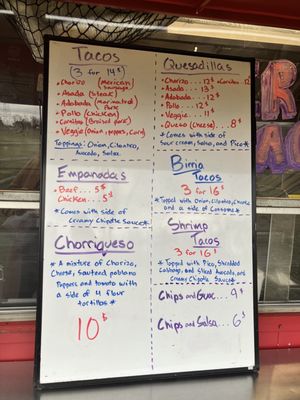 Tacos
(3 for 14$)
• Chorizo (Mexican Sausage)
• Asada (Steak)
• Adobada (Marinated Pork)
• Pollo (Chicken)
• Carnitas (Braised Pork)
• Veggie (Onion, Peppers, Corn)
Toppings: Onion, Cilantro,
Avocado, Salsa
Empanadas
• Beef... 5$
• Chicken... 5$
* Comes with side of
Creamy Chipotle Sauce *
Chorriqueso
* A mixture of Chorizo,
Cheese, Sauteed poblano
Peppers and tomato with
a side of 4 flour
tortillas *
10$
Quesadillas
• Chorizo... 12$ • Carnitas... 12$
• Asada... 13$
• Adobada... 12$
• Pollo... 12$
• Veggie... 11$
• Queso (Cheese)... 8$
* Comes with side of
Sour cream, Salsa, and Pico *
Birria
Tacos
3 for 16$
* Topped with Onion, Cilantro, Cheese
and a side of Consome *
Shrimp
Tacos
3 for 16$
* Topped with Pico, Shredded
Cabbage, and Sliced Avocado, and
Creamy Chipotle Sauce *
Chips and Guac... 9$
Chips and Salsa... 6$